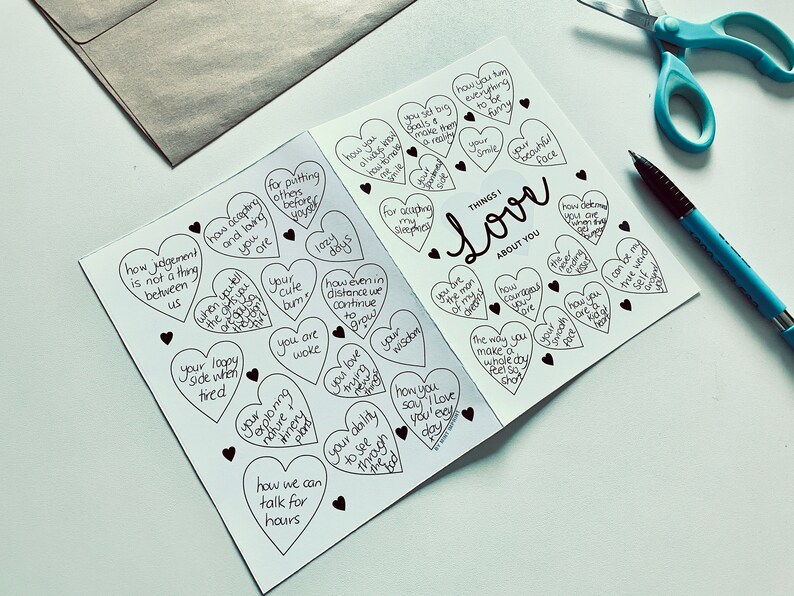 for putting
others
before
yourself
how accepting
and loving
you
are
lazy
days
how judgement
is not a thing
between
us
when you tell
your
cute
bum
how even in
distance we
continue
to
grow
you are
woke
your
wisdom
your loopy
side when
tired
you love
trying
new
things
how you
say 'I Love
you' every
day
x
your
exploring
nature +
your ability
to see
through
the
bad
how we can
talk for
hours
BY MINT IMPRINT
how you turn
everything
to be
funny
you set big
goals &
make them
a reality
how you
always know
how to make
me
smile
your
smile
your
beautiful
face
your
spontaneous
side
for accepting
my
sleepiness
THINGS I
Love
ABOUT YOU
how determined
you are
when things
get
bumpy
the
never
ending
kisses
I can be my
true weird
self
around
you
you are
the man
of my
dreams
how
courageous
you
are
how you
are a
kid at
heart
your
smooth
face
the way you
make a
whole day
feel so
short